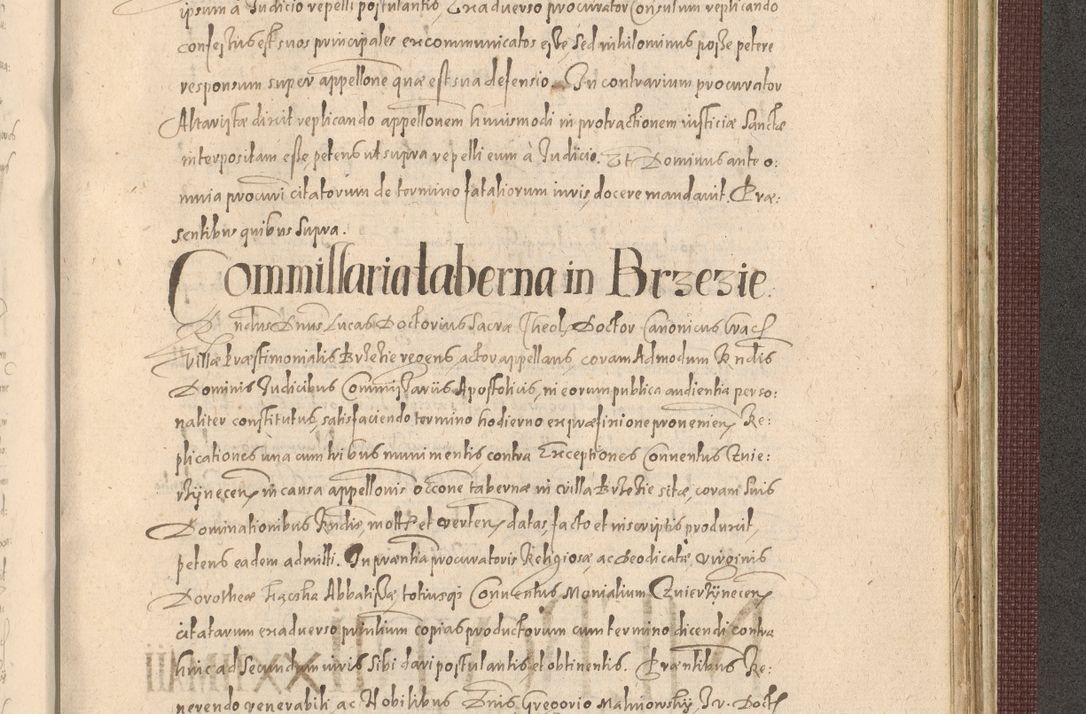 ipsum à Judicio repelli postulantis. Ex adverso procurator Consulum replicando
confessus est suos principales excommunicatos esse sed nihilominus posse petere
responsum super appellone quae est sua defensio. In contrarium procurator
Altaristae dixit replicando appellonem huiusmodi in protractionem iusticiae Sanctae
interpositam esse petens ut supra repelli eum à Judicio. Et Dominus ante o:
mnia procuri citatorum de termino fataliorum iuris docere mandavit. Prae:
sentibus quibus supra.
Commissaria taberna in Brzezie.
Rndus Dnus Lucas Doctorius Sacrae Theol. Doctor Canonicus Crac
villae Praestimonialis Brzezie regens, actor appellans, coram Admodum Rndis
Dominis Judicibus Commissariis Apostolicis, in eorum publica audientia perso:
naliter constitutus, satisfaciendo termino hodierno ex praefinione provenien. Re:
plicationes una cum tribus munimentis contra Exceptiones Conventus Zwie:
rzynecen. in causa appellonis occone tabernae in villa Brzezie sitae coram Suis
Dominationibus Rndis, mott. et verten. datas, facto et in scriptis produxit,
petens eadem admitti. In praentia procuratoris Religiosae ac Deodicatae Virginis
Dorotheae Kącska Abbatissae totiusq; Conventus Monialium Zwierzynecen.
citatarum ex adverso printium copias productorum cum termino dicendi contra
huic ad Secundum iuris sibi dari postulantis et obtinentis. Praentibus Re:
verendo venerabili ac Nobilibus Dnis Gregorio Malinowsky J. V. Doct.